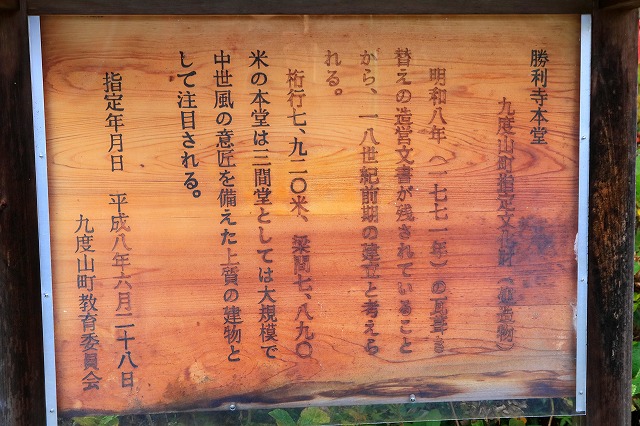 勝利寺本堂
九度山町指定文化財（建造物）
明和八年（一七七一年）の瓦葺き
替えの造営文書が残されていること
から、一八世紀前期の建立と考えら
れる。
桁行七、九二〇米、梁間七、八九〇
米の本堂は三間堂としては大規模で
中世風の意匠を備えた上質の建物と
して注目される。
指定年月日　平成八年六月二十八日
九度山町教育委員会